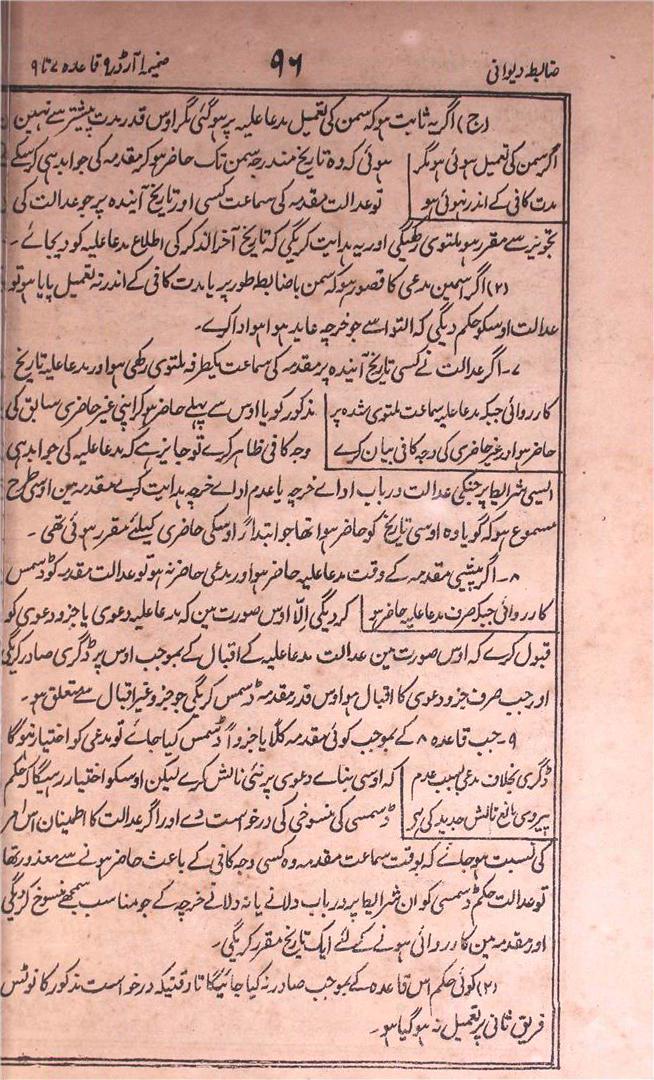 ضابطہ دیوانی ۹۶ ضمیمہ ا آرڈر ۹ قاعدہ ۷ تا ۹
(ج) اگر یہ ثابت ہو کہ سمن کی تعمیل مدعا علیہ پر ہو گئی مگر اوس قدر مدت پیشتر سے نہین
اگر سمن کی تعمیل ہوئی ہو مگر ہوئی کہ وہ تاریخ مندرجہ سمن تک حاضر ہو کر مقدمہ کی جوابدہی کر سکے
مدت کافی کے اندر نہوئی ہو تو عدالت مقدمہ کی سماعت کسی اور تاریخ آیندہ پر جو عدالت کی
تجویز سے مقرر ہو ملتوی رکھیگی اور یہ ہدایت کریگی کہ تاریخ آخر الذکر کی اطلاع مدعا علیہ کو دیجائے ۔
(۲) اگر اسمین مدعی کا قصور ہو کہ سمن باضابطہ طور پر یا مدت کافی کے اندر نہ تعمیل پایا ہو تو
عدالت اوسکو حکم دیگی کہ التوا سے جو خرچہ عاید ہوا ہو ادا کرے۔
۷۔ اگر عدالت نے کسی تاریخ آیندہ پر مقدمہ کی سماعت یکطرفہ ملتوی رکھی ہو اور مدعا علیہ تاریخ
کارروائی جبکہ مدعا علیہ سماعت ملتوی شدہ پر مذکور کو یا اوس سے پہلے حاضر ہو کر اپنی غیر حاضری سابق کی
حاضر ہو اور غیر حاضری کی وجہ کافی بیان کرے وجہ کافی ظاہر کرے تو جایز ہے کہ مدعا علیہ کی جوابدہی
ایسی شرایط پر جنکی عدالت درباب اداے خرچہ یا عدم اداے خرچہ ہدایت کرے مقدمہ مین اوسی طرح
مسموع ہو کہ گویا وہ اوسی تاریخ کو حاضر ہوا تھا جو ابتداءً اوسکی حاضری کیلئے مقرر ہوئی تھی ۔
۸۔ اگر پیشی مقدمہ کے وقت مدعا علیہ حاضر ہو اور مدعی حاضر نہ ہو تو عدالت مقدمہ کو ڈسمس
کارروائی جبکہ صرف مدعا علیہ حاضر ہو کر دیگی اِلّا اوس صورت مین کہ مدعا علیہ دعوی یا جزو دعوی کو
قبول کرے کہ اوس صورت مین عدالت مدعا علیہ کے اقبال کے بموجب اوس پر ڈگری صادر کریگی
اور جب صرف جزو دعوی کا اقبال ہو اوس قدر مقدمہ ڈسمس کریگی جو جزو غیر اقبال سے متعلق ہو۔
۹۔ جب قاعدہ ۸ کے بموجب کوئی مقدمہ کلاً یا جزواً ڈسمس کیا جائے تو مدعی کو اختیار نہوگا
ڈگری بخلاف مدعی بسبب عدم کہ اوسی بناے دعوی پر نئی نالش کرے لیکن اوسکو اختیار رہیگا کہ حکم
پیروی مانع نالش جدید کی ہے ڈسمسی کی منسوخی کی درخواست دے اور اگر عدالت کا اطمینان اس امر
کی نسبت ہو جائے کہ بوقت سماعت مقدمہ وہ کسی وجہ کافی کے باعث حاضر ہونے سے معذور تھا
تو عدالت حکم ڈسمسی کو ان شرایط پر درباب دلانے یا نہ دلانے خرچہ کے جو مناسب سمجھے منسوخ کریگی
اور مقدمہ مین کارروائی ہونے کے لئے ایک تاریخ مقرر کریگی۔
(۲) کوئی حکم اس قاعدہ کے بموجب صادر نہ کیا جائیگا تا وقتیکہ درخواست مذکور کا نوٹس
فریق ثانی پر تعمیل نہ ہو گیا ہو۔